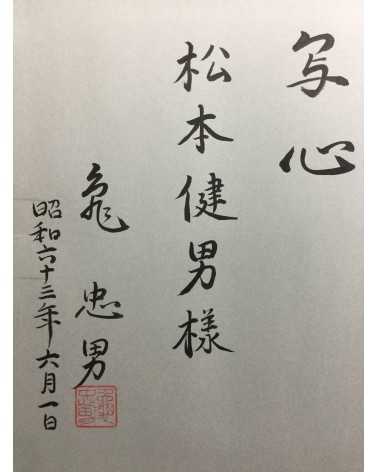 写心
松本健男様
亀忠男
昭和六十三年六月一日